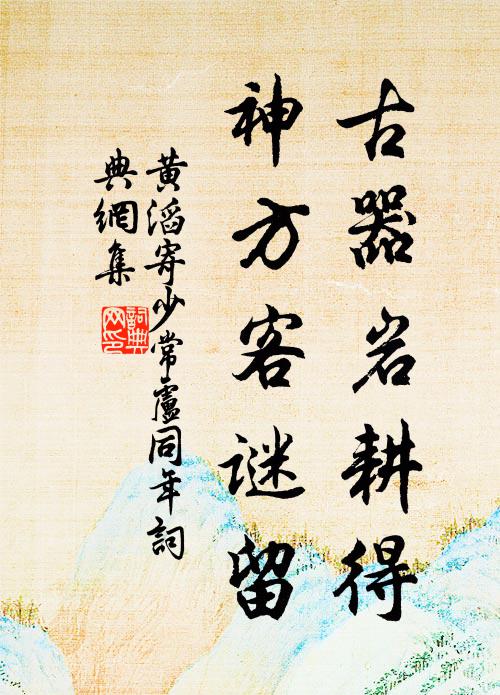 古器岩耕得
神方客谜留
黄滔寄少常盧同年詞
典網集
詞典网印